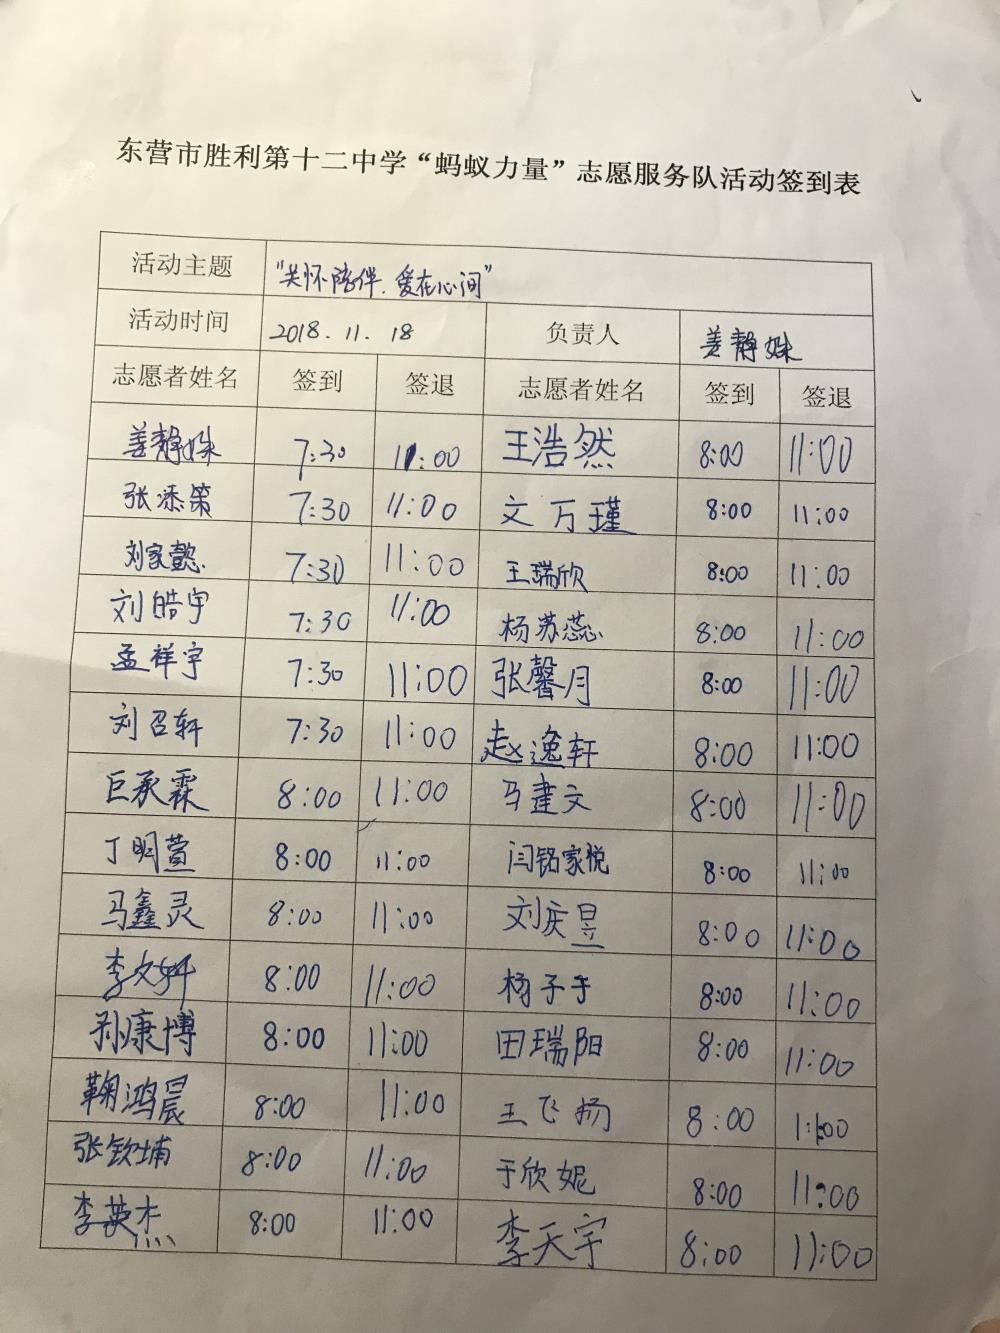 东营市胜利第十二中学“蚂蚁力量”志愿服务队活动签到表
活动主题 "关怀陪伴.爱在心间"
活动时间 2018.11.18 负责人 姜静姝
志愿者姓名 签到 签退 志愿者姓名 签到 签退
姜静姝 7:30 11:00 王浩然 8:00 11:00
张添策 7:30 11:00 文万瑾 8:00 11:00
刘家懿 7:30 11:00 王瑞欣 8:00 11:00
刘皓宇 7:30 11:00 杨苏蕊 8:00 11:00
孟祥宇 7:30 11:00 张馨月 8:00 11:00
刘召轩 7:30 11:00 赵逸轩 8:00 11:00
巨承霖 8:00 11:00 马建文 8:00 11:00
丁明萱 8:00 11:00 闫铭家悦 8:00 11:00
马鑫灵 8:00 11:00 刘庆昱 8:00 11:00
李文轩 8:00 11:00 杨子于 8:00 11:00
孙康博 8:00 11:00 田瑞阳 8:00 11:00
鞠鸿晨 8:00 11:00 王飞扬 8:00 11:00
张钦埔 8:00 11:00 于欣妮 8:00 11:00
李英杰 8:00 11:00 李天宇 8:00 11:00